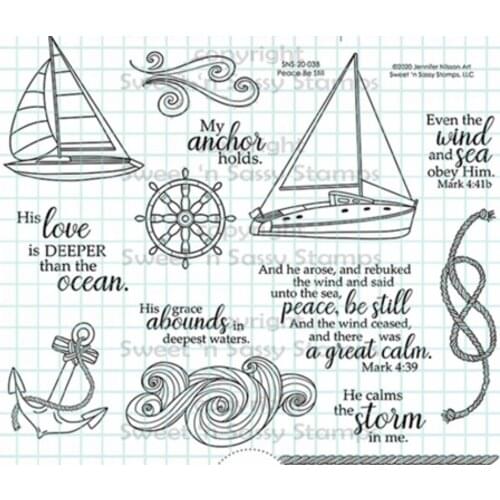 SNS-20-038
Peace Be Still
©2020 Jennifer Nilsson Art
Sweet 'n Sassy Stamps, LLC
copyright
Sweet 'n Sassy Stamps
My
anchor
holds.
Even the
wind
and sea
obey Him.
Mark 4:41b
His love
is DEEPER
than the
ocean.
copyright
Sweet 'n Sassy Stamps
And he arose, and rebuked
the wind and said
unto the sea,
peace, be still
And the wind ceased,
and there was
a great calm.
Mark 4:39
His grace
abounds in
deepest waters.
copyright
Sweet 'n Sassy Stamps
He calms
the storm
in me.
Sweet 'n Sassy Stamps